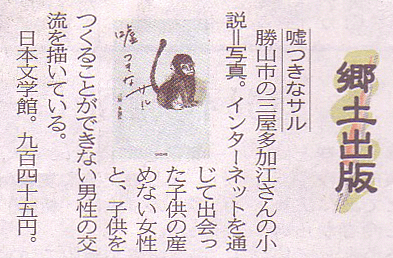 郷土出版
嘘つきなサル
勝山市の三屋多加江さんの小
説＝写真。インターネットを通
じて出会っ
た子供の産
めない女性
と、子供を
つくることができない男性の交
流を描いている。
日本文学館。九百四十五円。
嘘つきな
サル